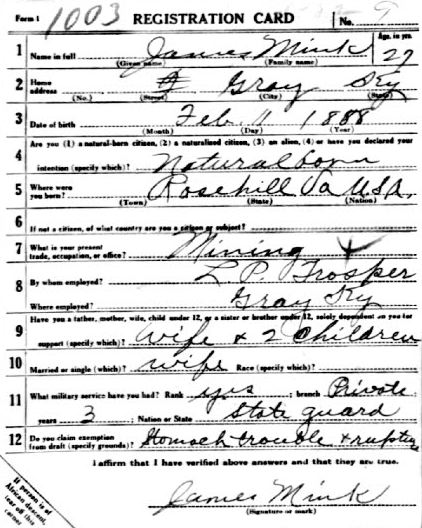 Form 1 1003 REGISTRATION CARD No. 9
1 Name in full James Mink Age, in yrs. 29
(Given name) (Family name)
2 Home address Gray Ky
(No.) (Street) (City) (State)
3 Date of birth Feb 11 1888
(Month) (Day) (Year)
4 Are you (1) a natural-born citizen, (2) a naturalized citizen, (3) an alien, (4) or have you declared your
intention (specify which)? Natural born
5 Where were you born? Rosehill Va USA.
(Town) (State) (Nation)
6 If not a citizen, of what country are you a citizen or subject?
7 What is your present trade, occupation, or office? Mining
8 By whom employed? L. P. Trosper
Where employed? Gray Ky
9 Have you a father, mother, wife, child under 12, or a sister or brother under 12, solely dependent on you for
support (specify which)? Wife & 2 Children
10 Married or single (which)? wife Race (specify which)?
11 What military service have you had? Rank yes ; branch Private
years 3 ; Nation or State State guard
12 Do you claim exemption from draft (specify grounds)? Stomach trouble & rupture
I affirm that I have verified above answers and that they are true.
James Mink
(Signature or mark)
If person is of
African descent,
tear off this
corner